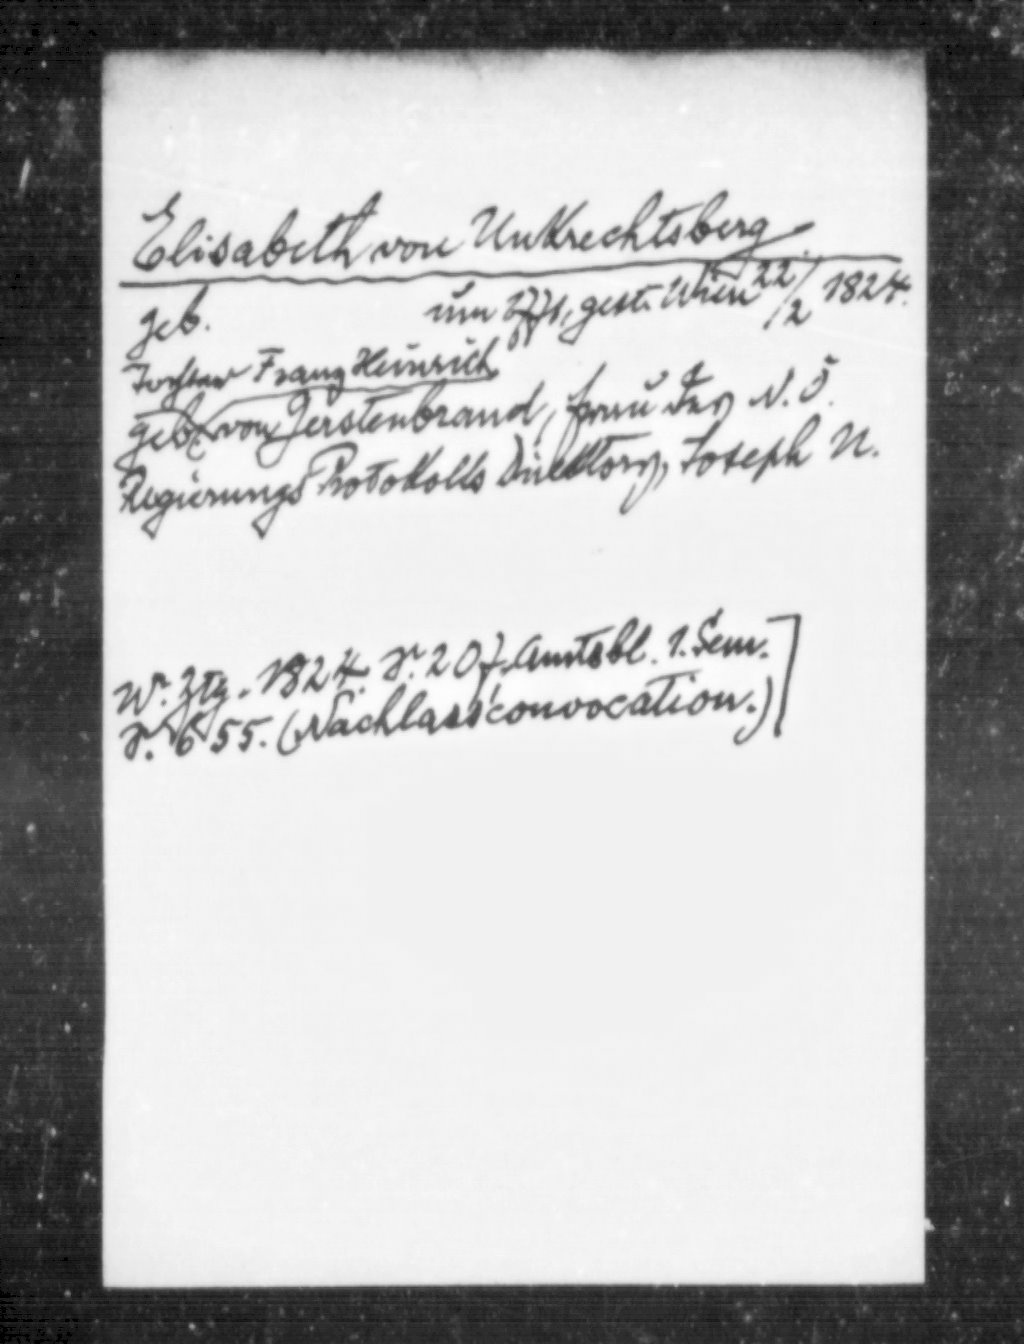 Elisabeth von Unkrechtsberg
geb. um 1771, gest. Wien 22/2 1824.
Tochter Franz Heinrich
geb. von Gerstenbrand, Frau des N. Ö.
Regierungs Protokolls Direktors, Joseph U.
W. Ztg. 1824. S. 207. Amtsbl. 1. Sem.
S. 655. (Nachlassconvocation.)]